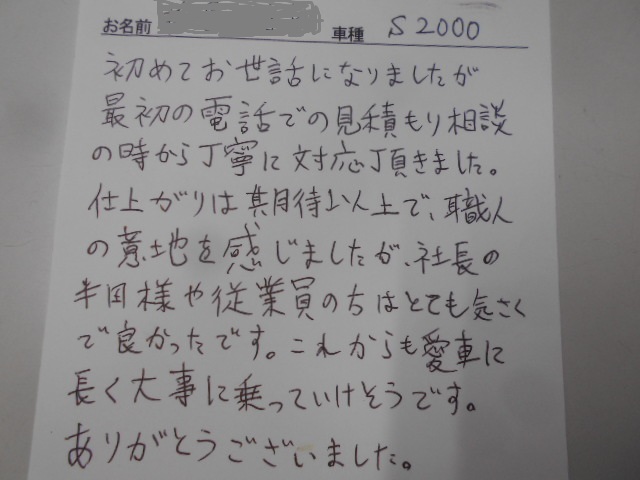 お名前 車種 S2000
初めてお世話になりましたが
最初の電話での見積もり相談
の時から丁寧に対応頂きました。
仕上がりは期待以上で、職人
の意地を感じましたが、社長の
半田様や従業員の方はとても気さく
で良かったです。これからも愛車に
長く大事に乗っていけそうです。
ありがとうございました。